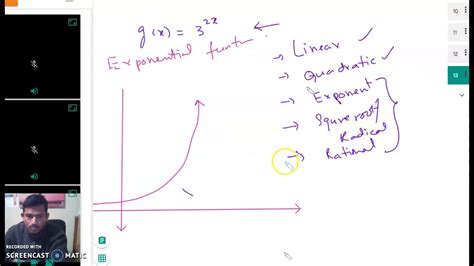 g(x) = 3^2x ←
Exponential functn.
→ Linear ✓
→ Quadratic ✓
→ Exponent
→ Squre root/
Radical
→ Rational
10
11
12
13
RECORDED WITH
SCREENCAST MATIC